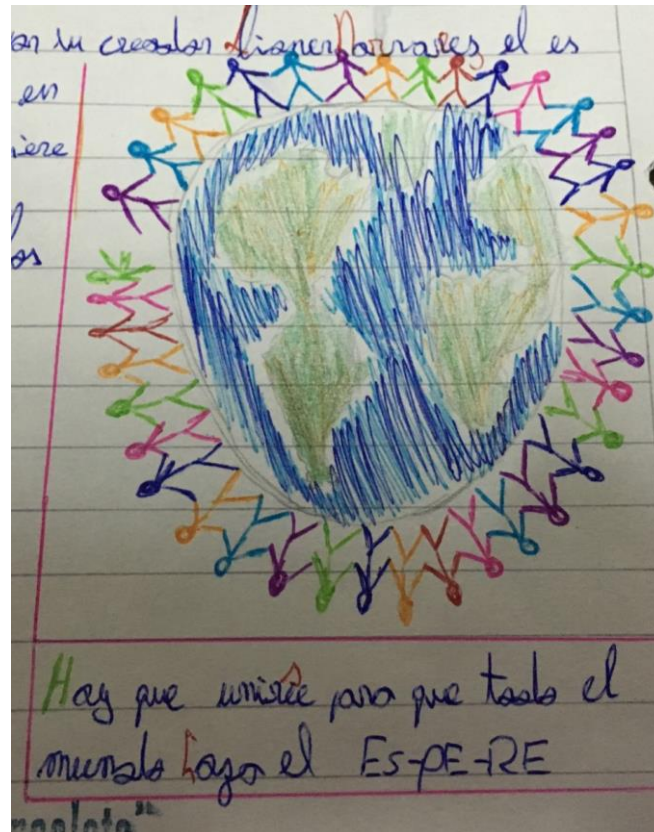 su creador Lioner Narvaes el es
en
iere
os
Hay que unirse para que todo el
mundo haga el ES-PE-RE